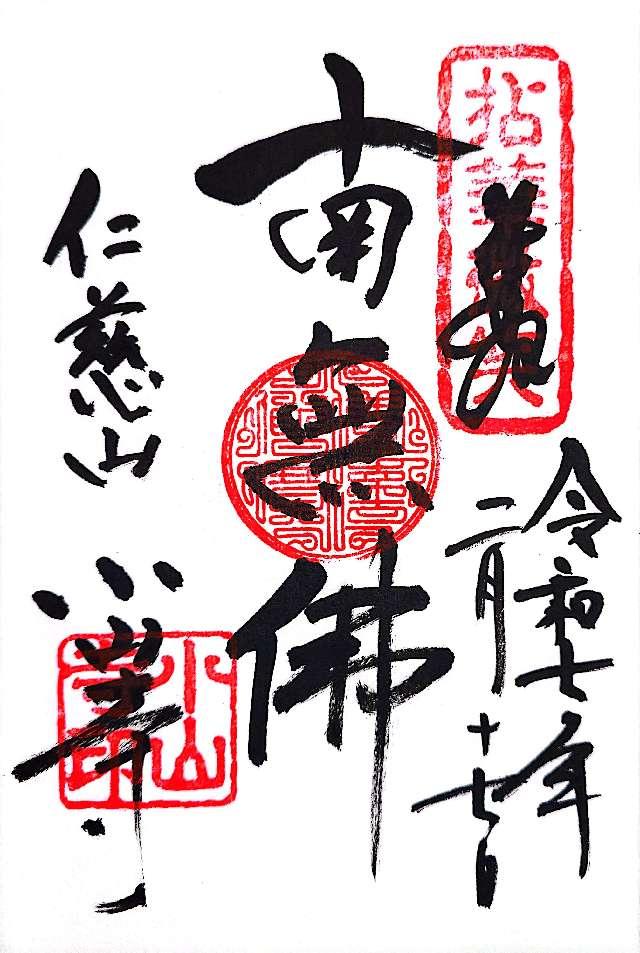 拈華微笑
令和七年
二月十七日
南無佛
仁慈山
小山寺
小山寺印